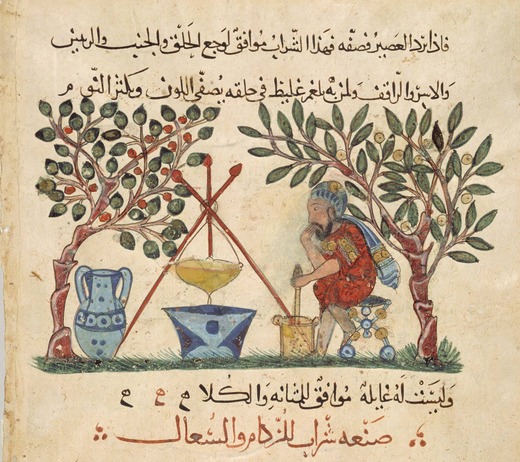 فاذا برد العصير فصفه فهذا الشراب موافق لوجع الحلق والجنب والرئين
ولمن به بلغم غليظ في حلقه يصفي اللون ويكثر النوم
وليست له غايلة موافق للمثانه والكلا
صنعه شراب للزكام والسعال